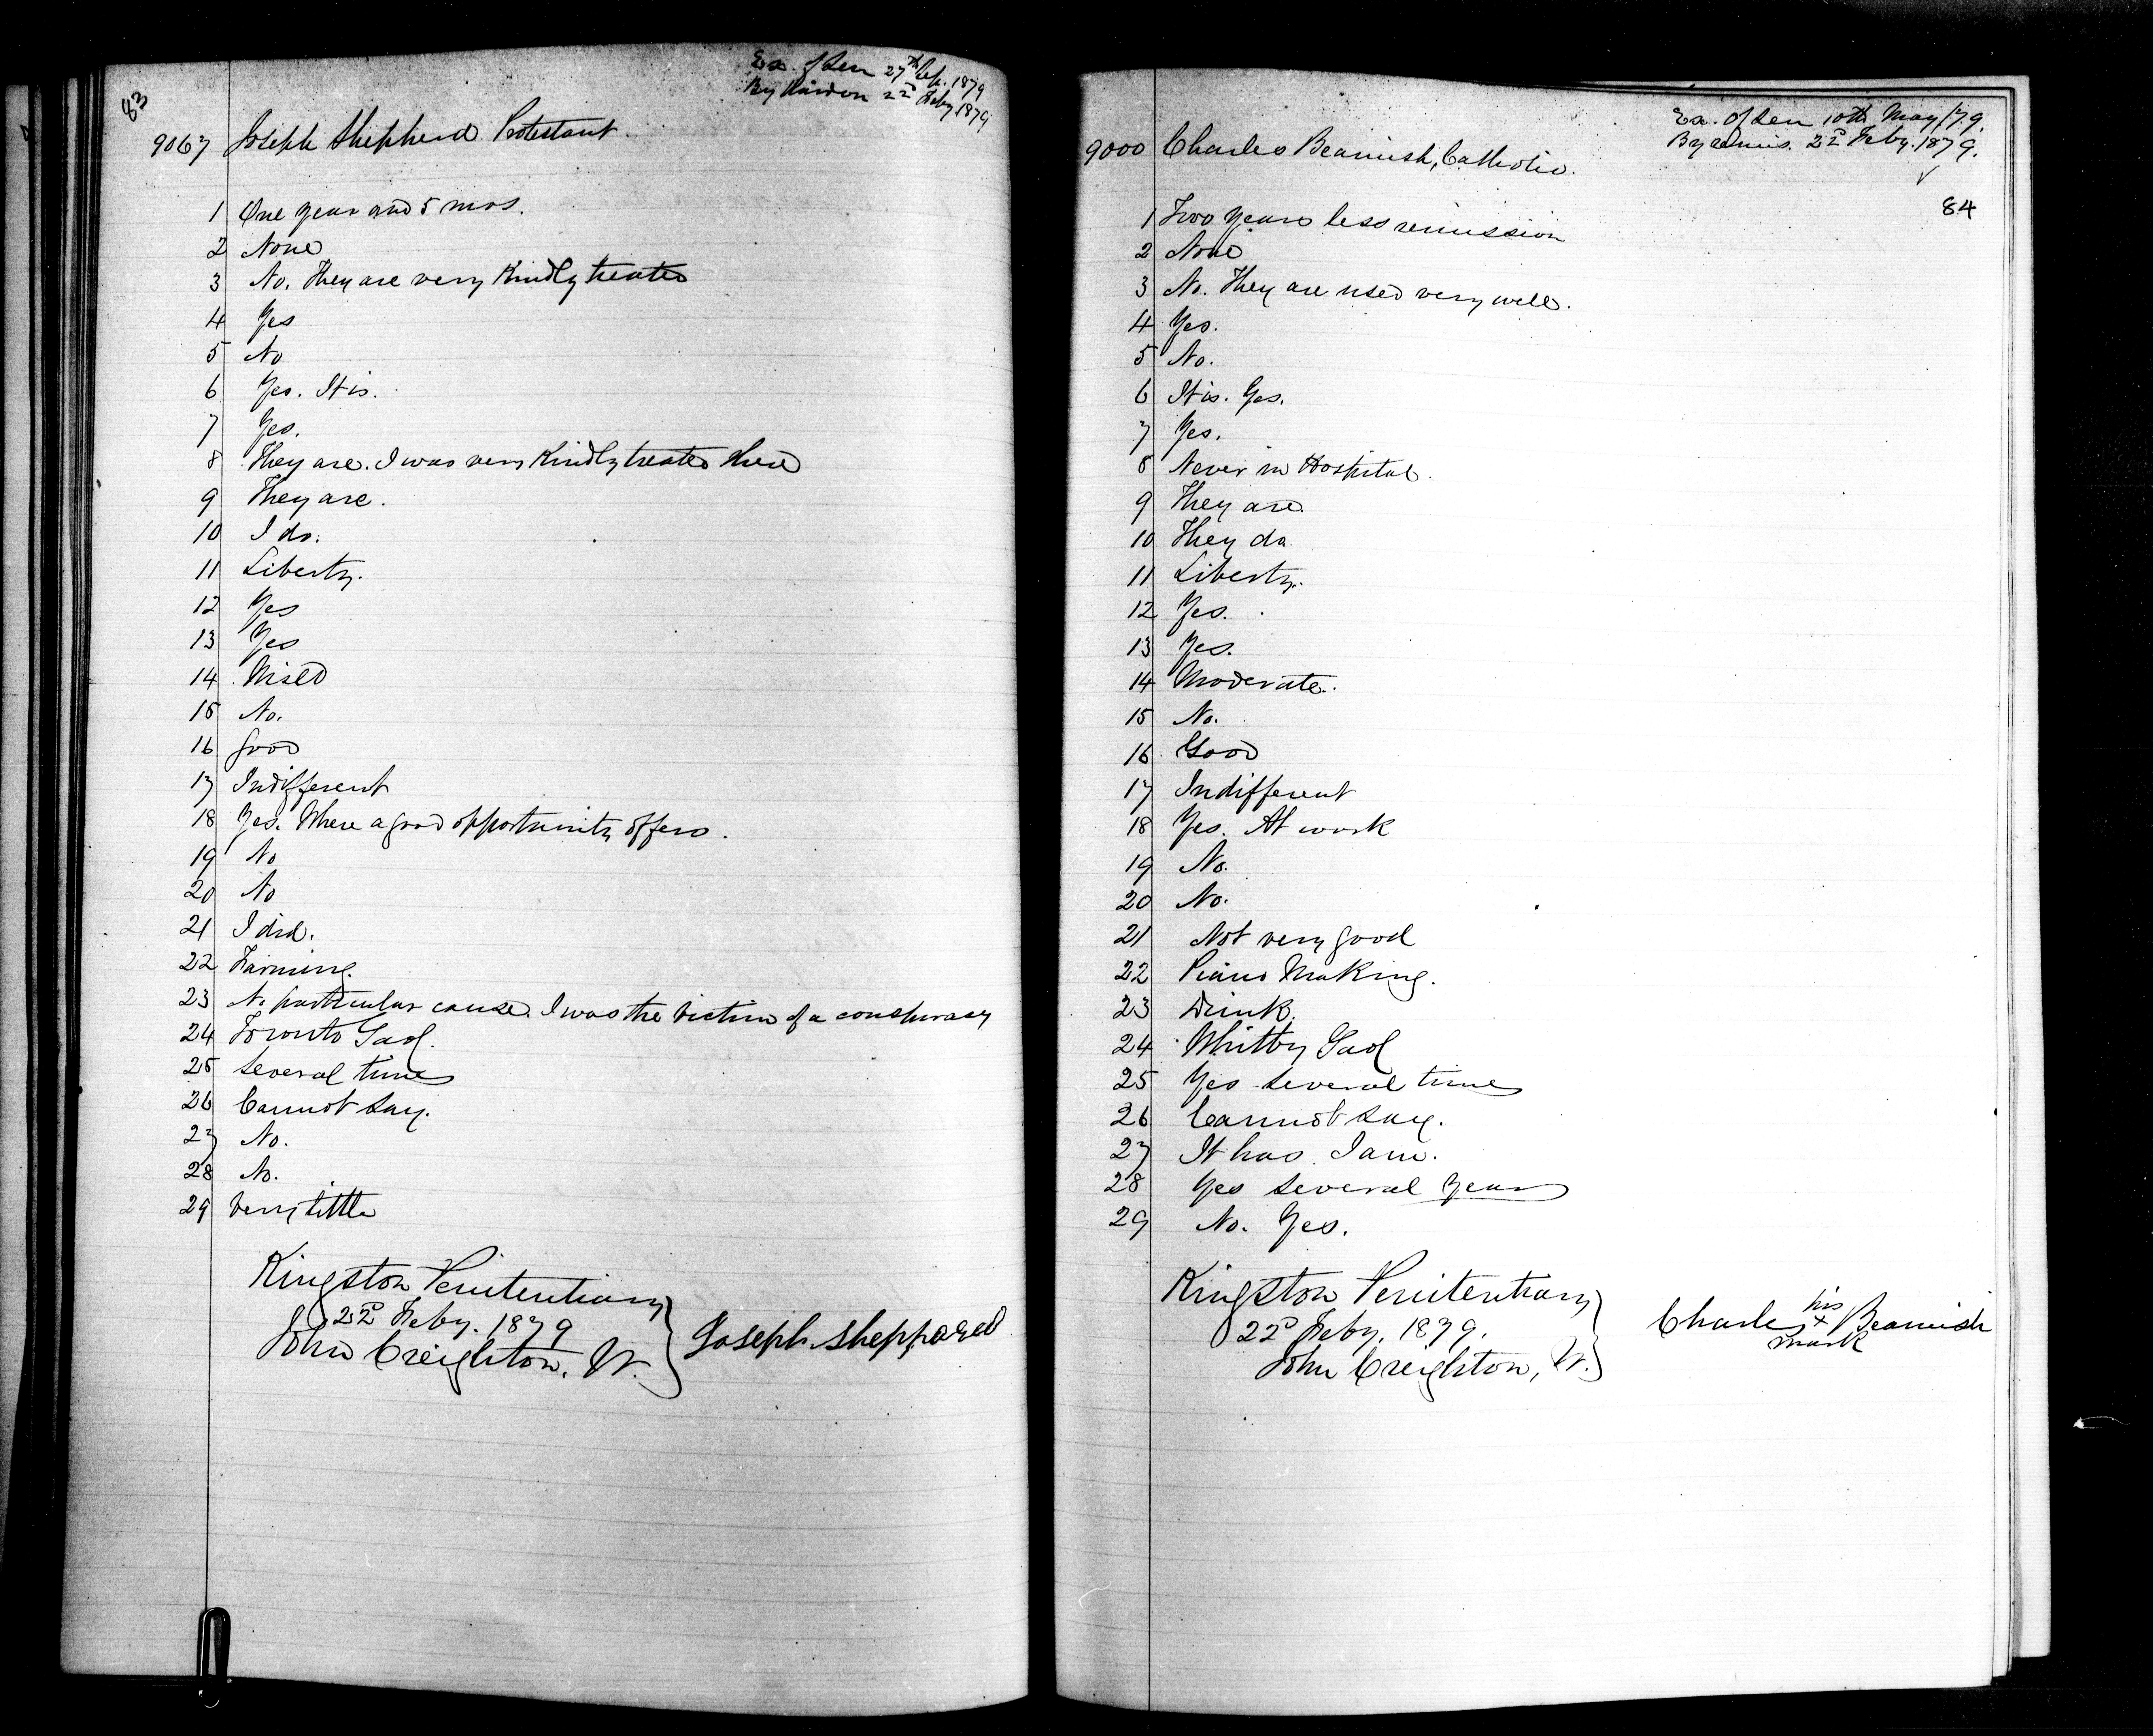 83
Ex. of Sen 27th Sep. 1879
By Pardon 22d Feby 1879
9067 Joseph Shepherd Protestant.
1 One year and 5 mos.
2 None
3 No. They are very kindly treated
4 Yes
5 No
6 Yes. It is.
7 Yes.
8 They are. I was very kindly treated there
9 They are.
10 I do.
11 Liberty.
12 Yes
13 Yes
14 Mixed
15 No.
16 Good
17 Indifferent
18 Yes. Where a good opportunity offers.
19 No
20 No
21 I did.
22 Farming.
23 No particular cause. I was the victim of a conspiracy
24 Toronto Gaol.
25 Several times
26 Cannot say.
27 No.
28 No.
29 Very little
Kingston Penitentiary
22d Feby. 1879
John Creighton, W.
Joseph sheppared
Ex. of Sen 10th May /79.
By remis. 22d Feby. 1879.
84
9000 Charles Beamish, Catholic.
1 Two years less remission
2 None
3 No. They are used very well.
4 Yes.
5 No.
6 It is. Yes.
7 Yes.
8 Never in Hospital.
9 They are.
10 They do
11 Liberty.
12 Yes.
13 Yes.
14 Moderate.
15 No.
16 Good
17 Indifferent
18 Yes. At work
19 No.
20 No.
21 Not very good
22 Piano Making.
23 Drink.
24 Whitby Gaol
25 Yes several times
26 Cannot say.
27 It has. I am.
28 Yes several years
29 No. Yes.
Kingston Penitentiary
22d Feby. 1879.
John Creighton, W.
his
Charles x Beamish
mark